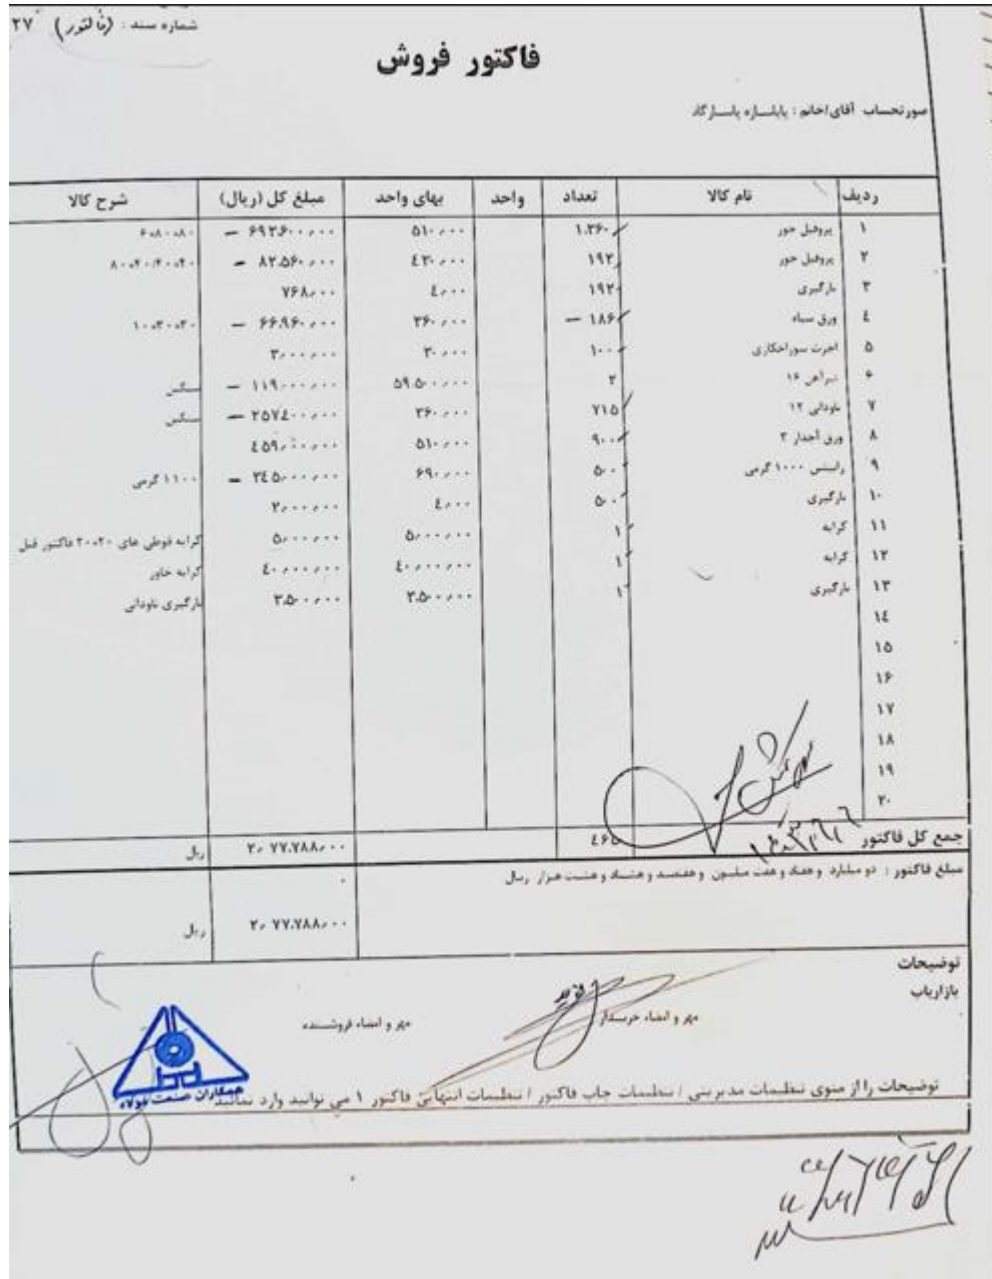 شماره سند : (فاکتور) ۲۷
فاکتور فروش
صورتحساب آقای/خانم : پایاسازه پاسارگاد
ردیف نام کالا تعداد واحد بهای واحد مبلغ کل (ریال) شرح کالا
۱ پروفیل خور ۱,۳۶۰ ۵۱۰,۰۰۰ ۶۹۳,۶۰۰,۰۰۰
۲ پروفیل خور ۱۹۲ ۴۳۰,۰۰۰ ۸۲,۵۶۰,۰۰۰
۳ بارگیری ۱۹۲ ۴,۰۰۰ ۷۶۸,۰۰۰
۴ ورق سیاه ۱۸۶ ۳۶۰,۰۰۰ ۶۶,۹۶۰,۰۰۰
۵ اجرت سوراخکاری ۱۰۰ ۳۰,۰۰۰ ۳,۰۰۰,۰۰۰
۶ تیرآهن ۱۶ ۲ ۵۹,۵۰۰,۰۰۰ ۱۱۹,۰۰۰,۰۰۰ سنگین
۷ ناودانی ۱۲ ۷۱۵ ۳۶۰,۰۰۰ ۲۵۷,۴۰۰,۰۰۰ سنگین
۸ ورق آجدار ۳ ۹۰۰ ۵۱۰,۰۰۰ ۴۵۹,۰۰۰,۰۰۰
۹ رابیتس ۱۰۰۰ گرمی ۵۰۰ ۶۹۰,۰۰۰ ۳۴۵,۰۰۰,۰۰۰ ۱۱۰۰ گرمی
۱۰ بارگیری ۵۰۰ ۴,۰۰۰ ۲,۰۰۰,۰۰۰
۱۱ کرایه ۱ ۵,۰۰۰,۰۰۰ ۵,۰۰۰,۰۰۰ کرایه قوطی های ۲۰*۲۰ فاکتور قبل
۱۲ کرایه ۱ ۴۰,۰۰۰,۰۰۰ ۴۰,۰۰۰,۰۰۰ کرایه خاور
۱۳ بارگیری ۱ ۳,۵۰۰,۰۰۰ ۳,۵۰۰,۰۰۰ بارگیری ناودانی
۱۴
۱۵
۱۶
۱۷
۱۸
۱۹
۲۰
جمع کل فاکتور ۲,۰۷۷,۷۸۸,۰۰۰ ریال
مبلغ فاکتور : دو میلیارد و هفتاد و هفت میلیون و هفتصد و هشتاد و هشت هزار ریال
۲,۰۷۷,۷۸۸,۰۰۰ ریال
توضیحات
بازاریاب
مهر و امضاء خریدار مهر و امضاء فروشنده
همکاران صنعت فولاد
توضیحات را از منوی تنظیمات مدیریتی / تنظیمات چاپ فاکتور / تنظیمات انتهایی فاکتور ۱ می توانید وارد نمائید